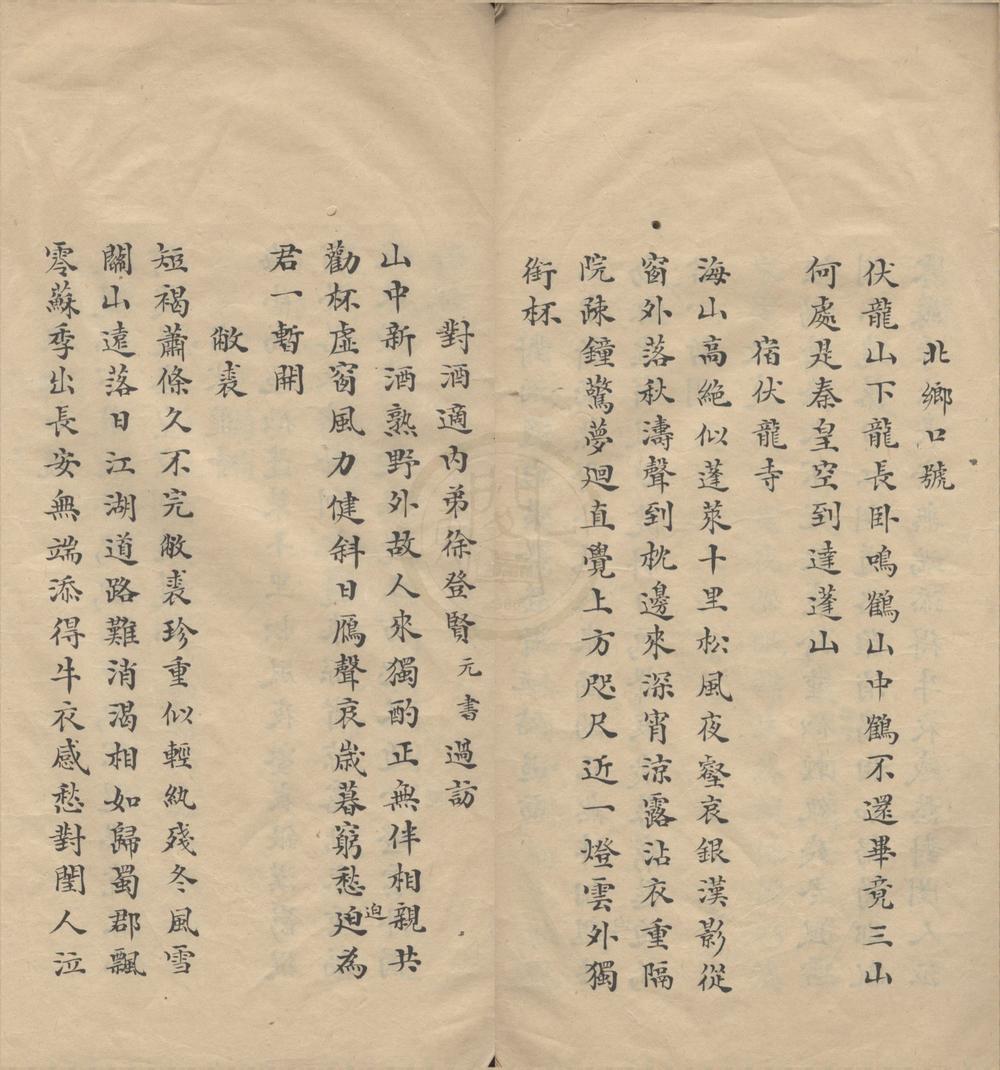 北鄉口號
伏龍山下龍長臥鳴鶴山中鶴不還畢竟三山
何處是秦皇空到達蓬山
宿伏龍寺
海山高絶似蓬萊十里松風夜壑哀銀漢影從
窗外落秋濤聲到枕邊來深宵涼露沾衣重隔
院疎鐘驚夢迴直覺上方咫尺近一燈雲外獨
銜杯
對酒適內弟徐登賢元書過訪
山中新酒熟野外故人來獨酌正無伴相親共
勸杯虛窗風力健斜日鴈聲哀歲暮窮愁廹迫為
君一暫開
敝裘
短褐蕭條久不完敝裘珍重似輕紈殘冬風雪
關山遠落日江湖道路難消渴相如歸蜀郡飄
零蘇季出長安無端添得牛衣感愁對閨人泣